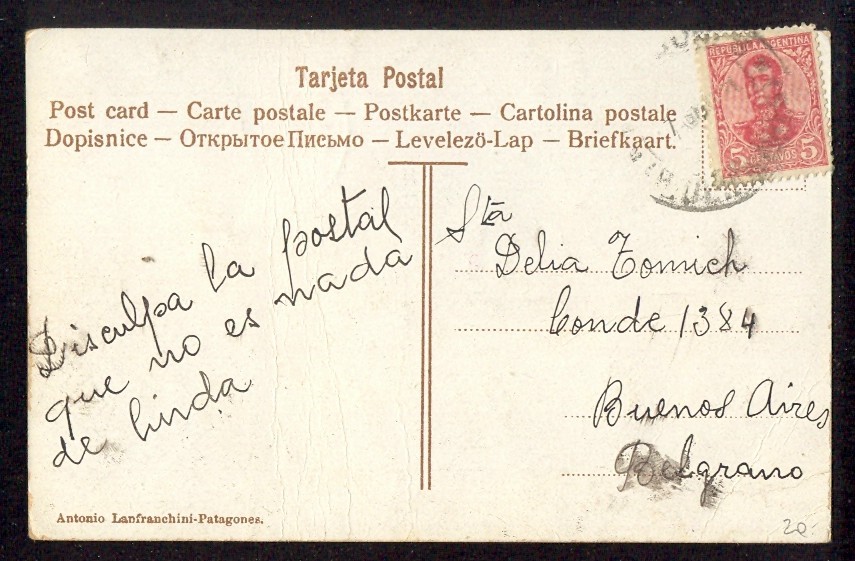 Tarjeta Postal
Post card — Carte postale — Postkarte — Cartolina postale
Dopisnice — Открытое Письмо — Levelezö-Lap — Briefkaart.
REPUBLICA ARGENTINA
5 CENTAVOS 5
Disculpa la postal
que no es nada
de linda
Sta
Delia Tomich
Conde 1384
Buenos Aires
Belgrano
Antonio Lanfranchini-Patagones.
20.